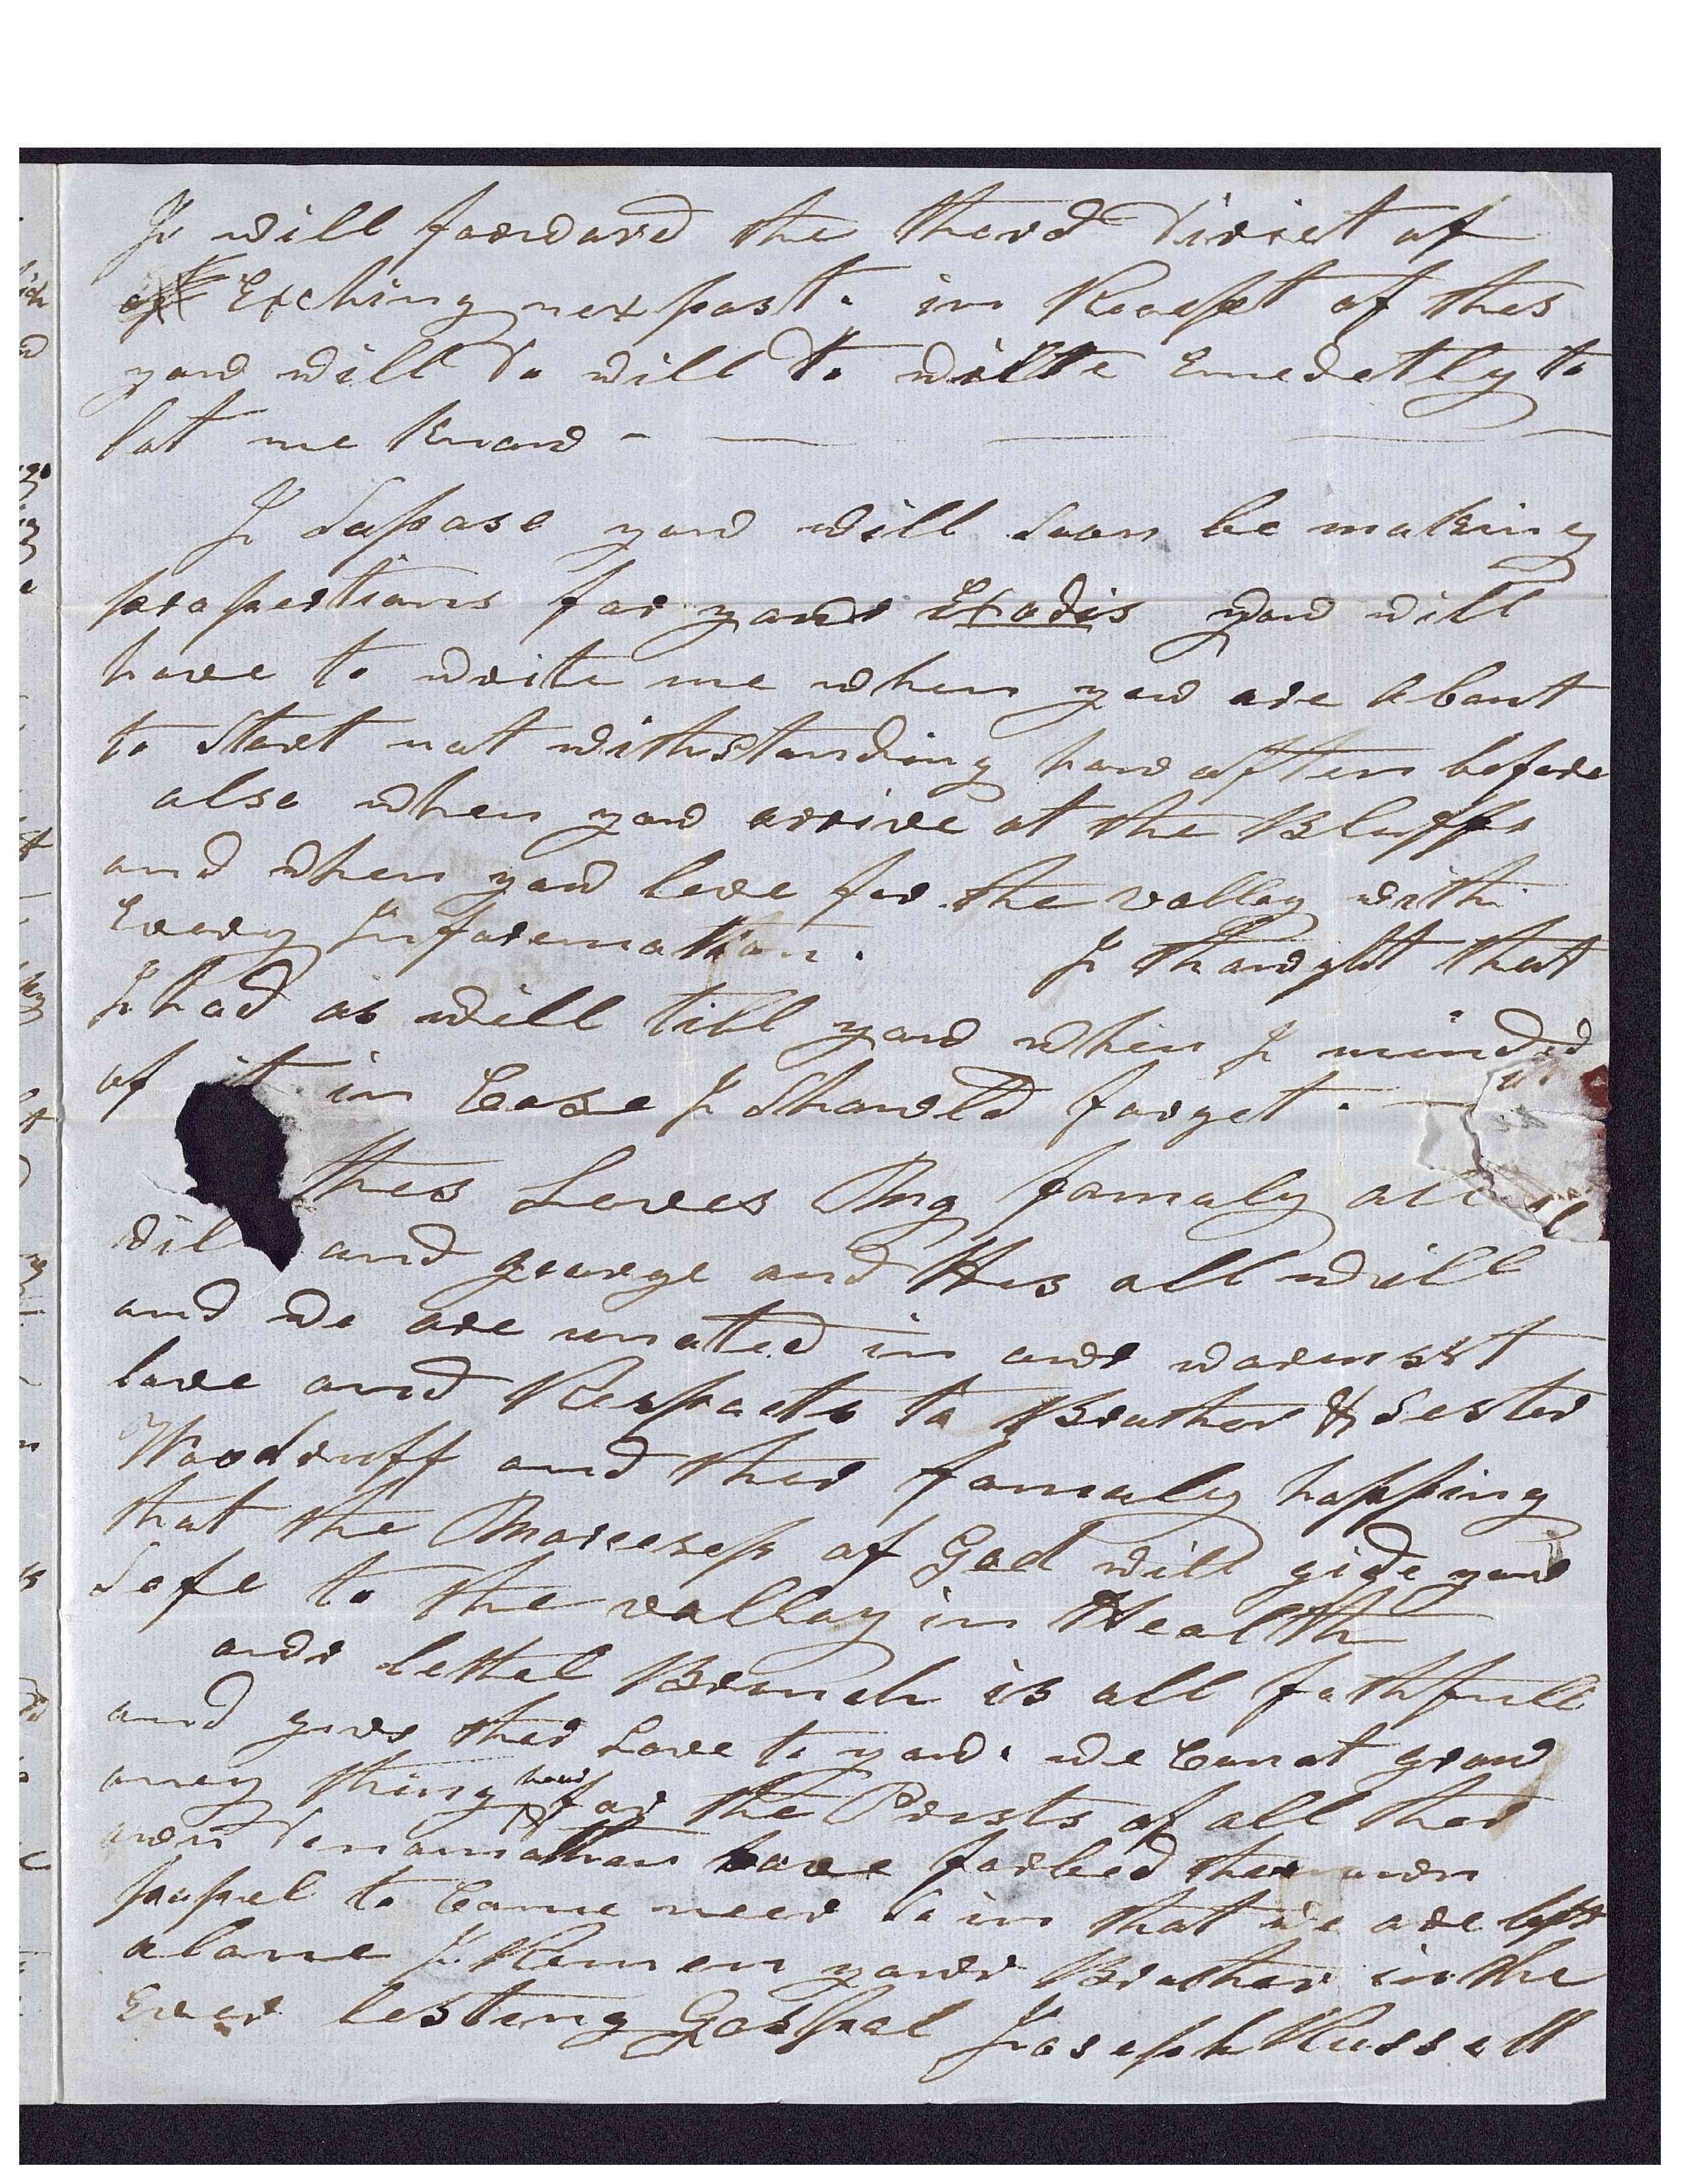 I will forward the therd Virict of
of Exching nex post. in Recept of thes
yow will do will to write Emedetly to
lat me know -
I Sopose yow will Soon be making
propertions for yowr Exodis yow will
have to write me when yow are About
to Start not withstanding how often before
also when yow arrive at the Bluffs
and when yow leve for the valley with
Every Information. I thowght that
I had as will till yow when I minded
of it in Case I Showld forget. -
thes Leves My famaly all
wil and george and His all will
and we are unated in owr warmest
love and Respacts to Brother & Sester
Woodruff and ther famaly hopping
that the Marcesep of God will gide yow
Safe to the valley in Health
owr lettel Brench is all fathfull
and gives ther Love to yow. we Canot grow
aney thing now for the Prests of all ther
own Denamathan have forbed ther own
popel to Come neer So in that we are left
alone I Remen yowr Brother in the
Ever lesting Gospal Joseph Russell